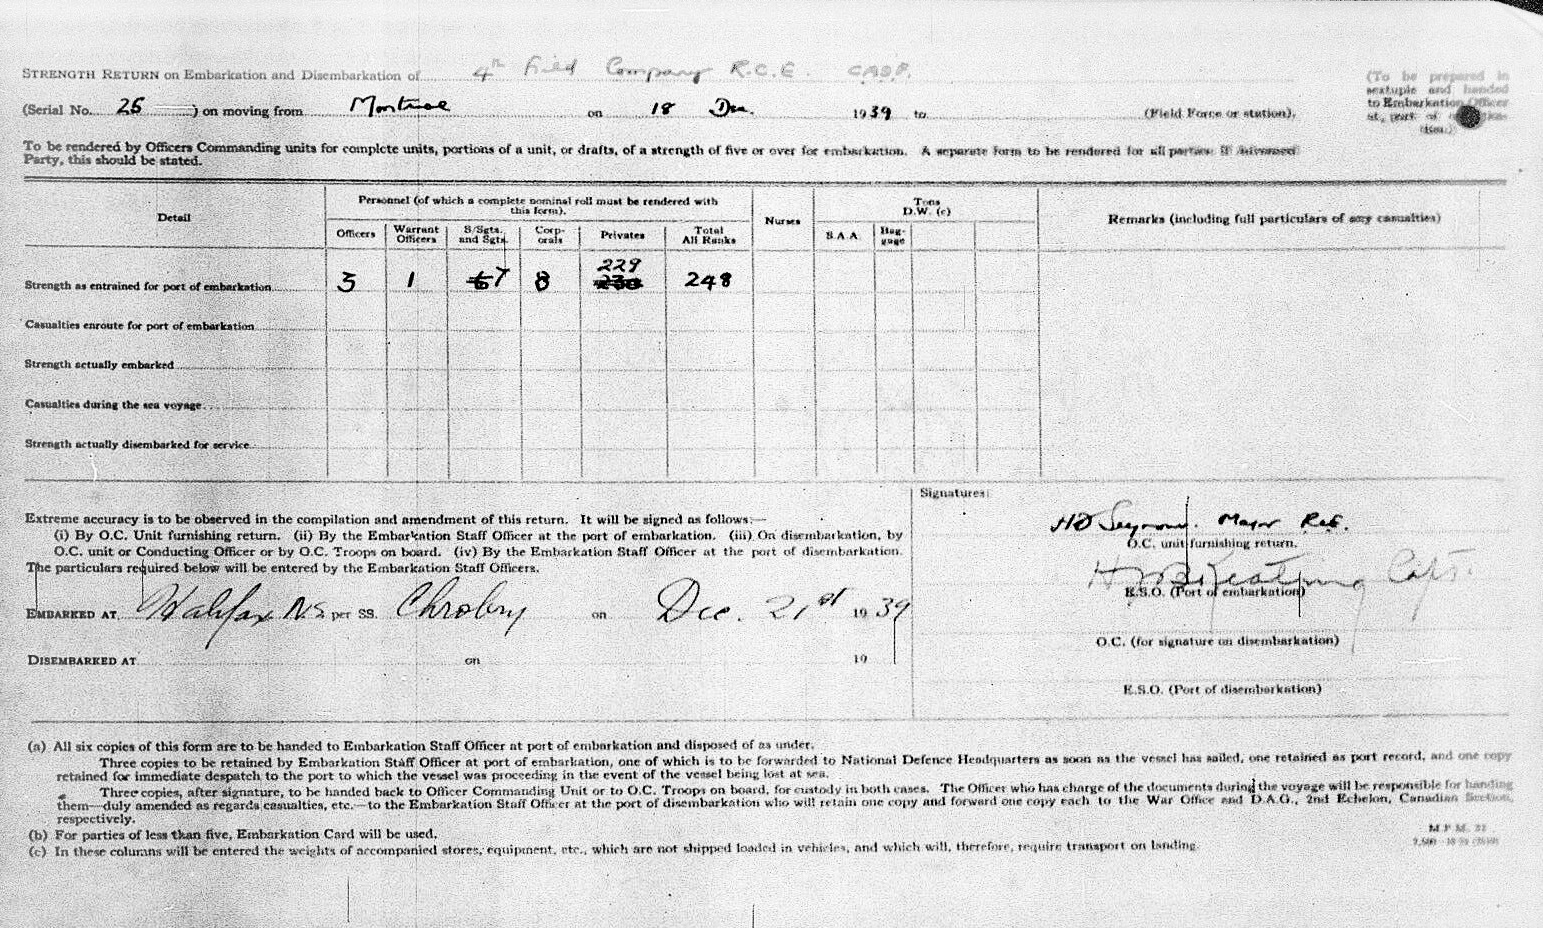 STRENGTH RETURN on Embarkation and Disembarkation of 4th Field Company R.C.E. C.A.S.F.
(To be prepared in sextuple and handed to Embarkation Officer at, port of
(Serial No. 25 ) on moving from Montreal on 18 Dec. 1939 to (Field Force or station).
To be rendered by Officers Commanding units for complete units, portions of a unit, or drafts, of a strength of five or over for embarkation. A separate form to be rendered for all parties. If Advanced
Party, this should be stated.
Detail
Personnel (of which a complete nominal roll must be rendered with this form).
Nurses
Tons D.W. (c)
Remarks (including full particulars of any casualties)
Officers Warrant Officers S/Sgts. and Sgts. Corporals Privates Total All Ranks S.A.A. Baggage
229
Strength as entrained for port of embarkation 3 1 6 7 8 230 248
Casualties enroute for port of embarkation
Strength actually embarked
Casualties during the sea voyage
Strength actually disembarked for service
Signatures:
Extreme accuracy is to be observed in the compilation and amendment of this return. It will be signed as follows:—
(i) By O.C. Unit furnishing return. (ii) By the Embarkation Staff Officer at the port of embarkation. (iii) On disembarkation, by
O.C. unit or Conducting Officer or by O.C. Troops on board. (iv) By the Embarkation Staff Officer at the port of disembarkation.
The particulars required below will be entered by the Embarkation Staff Officers.
HD Seymour. Major
O.C. unit furnishing return.
Keating Capt.
E.S.O. (Port of embarkation)
EMBARKED AT Halifax N.S. per SS. Chrobry on Dec. 21st 1939
O.C. (for signature on disembarkation)
DISEMBARKED AT on 19
E.S.O. (Port of disembarkation)
(a) All six copies of this form are to be handed to Embarkation Staff Officer at port of embarkation and disposed of as under.
Three copies to be retained by Embarkation Staff Officer at port of embarkation, one of which is to be forwarded to National Defence Headquarters as soon as the vessel has sailed, one retained as port record, and one copy
retained for immediate despatch to the port to which the vessel was proceeding in the event of the vessel being lost at sea.
Three copies, after signature, to be handed back to Officer Commanding Unit or to O.C. Troops on board, for custody in both cases. The Officer who has charge of the documents during the voyage will be responsible for handing
them—duly amended as regards casualties, etc.—to the Embarkation Staff Officer at the port of disembarkation who will retain one copy and forward one copy each to the War Office and D.A.G., 2nd Echelon, Canadian Section,
respectively.
(b) For parties of less than five, Embarkation Card will be used.
(c) In these columns will be entered the weights of accompanied stores, equipment, etc., which are not shipped loaded in vehicles, and which will, therefore, require transport on landing.